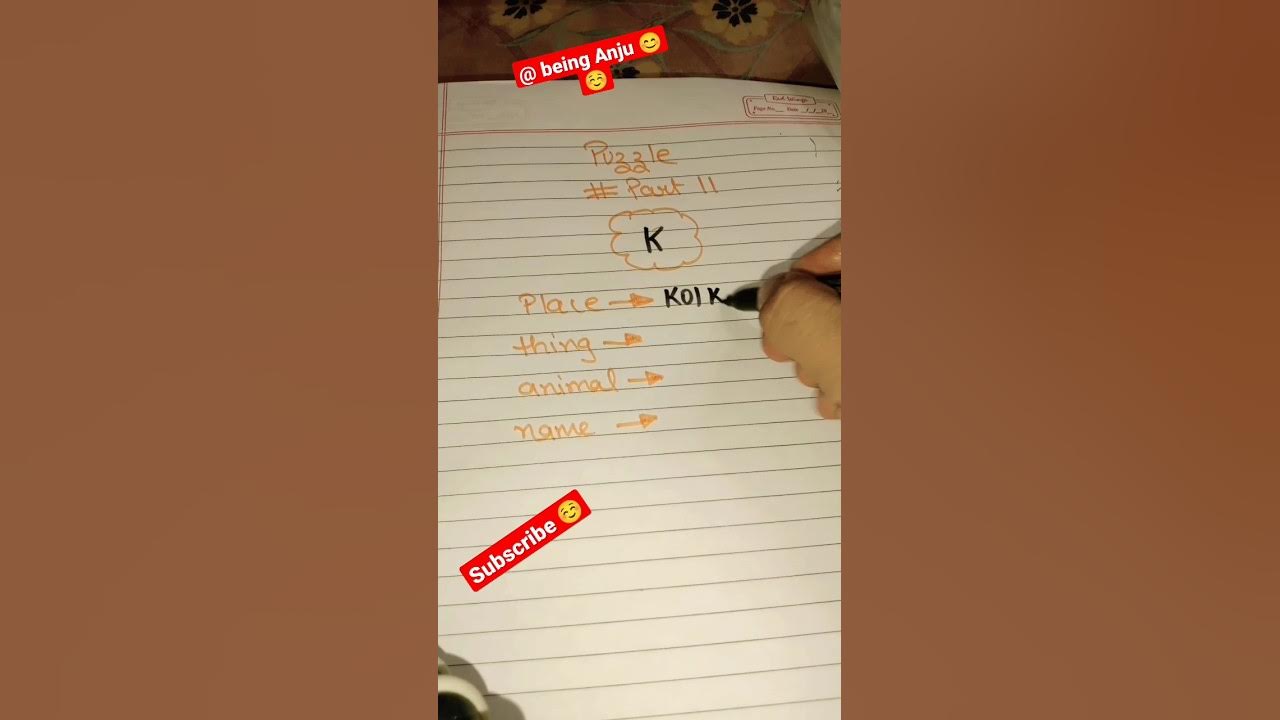 @ being Anju 😊
☺️
Page No. Date
Puzzle
# Part 11
K
Place → Kolk
thing →
animal →
name →
Subscribe ☺️